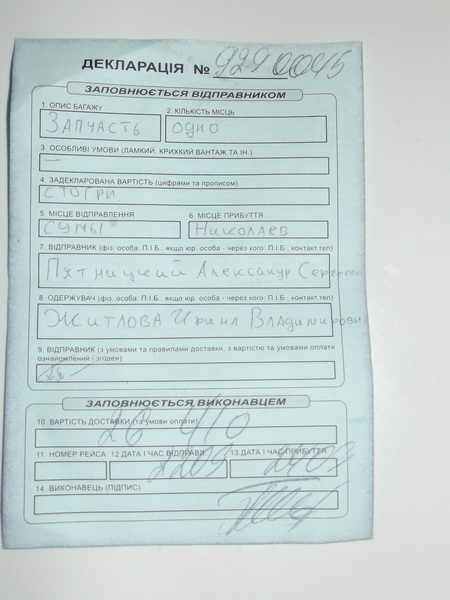 ДЕКЛАРАЦІЯ № 9290045
ЗАПОВНЮЄТЬСЯ ВІДПРАВНИКОМ
1. ОПИС БАГАЖУ 2. КІЛЬКІСТЬ МІСЦЬ
ЗАПЧАСТЬ ОДНО
3. ОСОБЛИВІ УМОВИ (ЛАМКИЙ, КРИХКИЙ ВАНТАЖ ТА ІН.)
—
4. ЗАДЕКЛАРОВАНА ВАРТІСТЬ (цифрами та прописом)
СТО ГРН.
5. МІСЦЕ ВІДПРАВЛЕННЯ 6. МІСЦЕ ПРИБУТТЯ
СУМЫ НИКОЛАЕВ
7. ВІДПРАВНИК (фіз. особа: П.І.Б., якщо юр. особа - через кого: П.І.Б., контакт.тел)
ПЯТНИЦКИЙ АЛЕКСАНДР
8. ОДЕРЖУВАЧ (фіз. особа: П.І.Б., якщо юр. особа - через кого: П.І.Б., контакт.тел)
ЖИТЛОВА ИРИНА ВЛАДИМИРОВН
9. ВІДПРАВНИК (з умовами та правилами доставки, з вартістю та умовами оплати
ознайомлений і згоден)
ЗАПОВНЮЄТЬСЯ ВИКОНАВЦЕМ
10. ВАРТІСТЬ ДОСТАВКИ (та умови оплати)
20 4/0
11. НОМЕР РЕЙСА 12.ДАТА І ЧАС ВІДПРАВЛ. 13.ДАТА І ЧАС ПРИБУТТЯ
2209 2409
14. ВИКОНАВЕЦЬ (ПІДПИС)